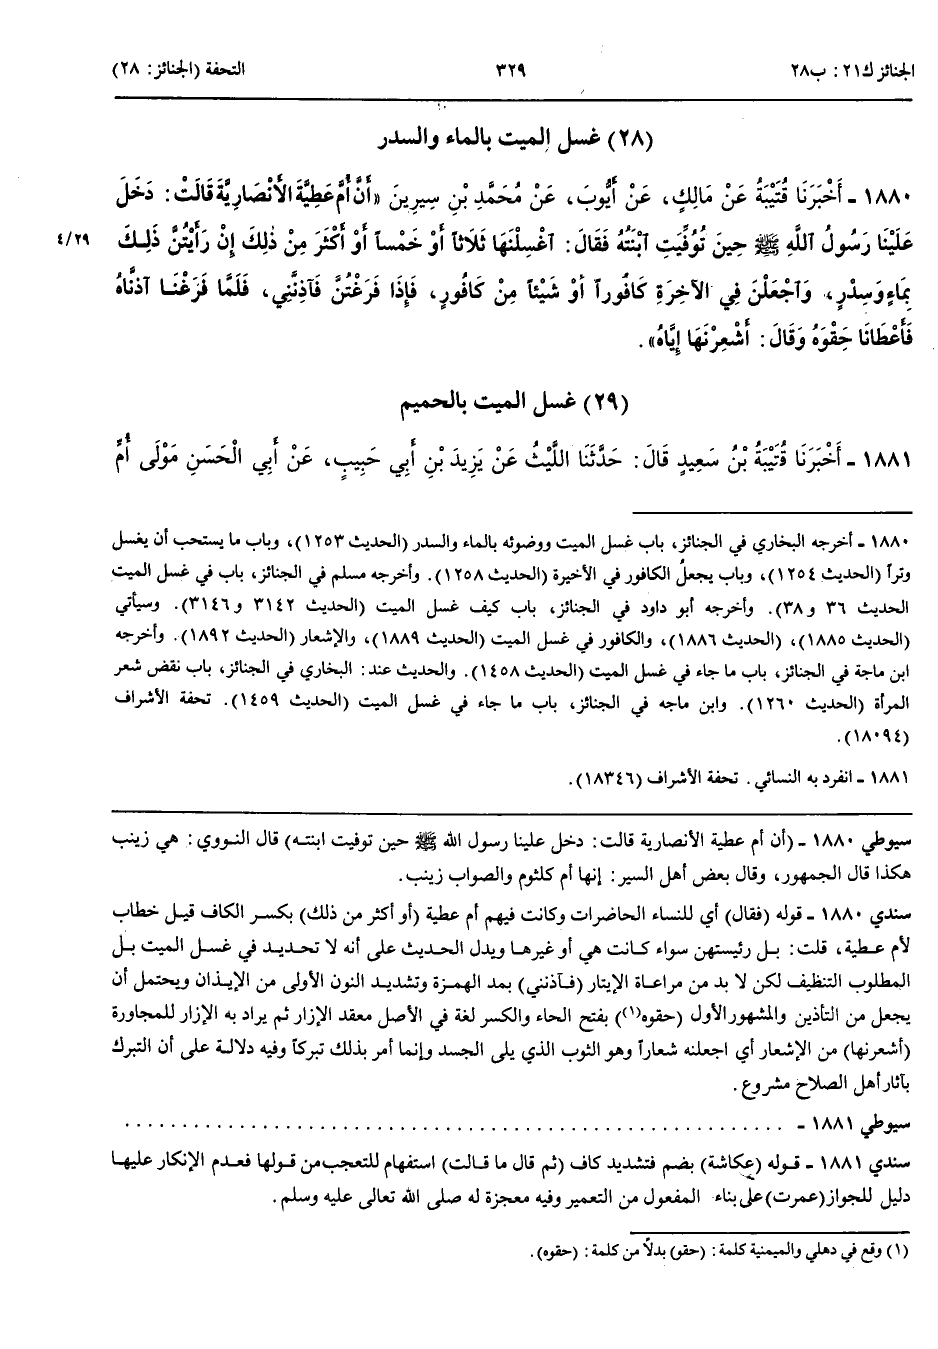 الجنائز ك٢١: ب٢٨
٣٢٩
التحفة (الجنائز: ٢٨)
(٢٨) غسل الميت بالماء والسدر
١٨٨٠ - أَخْبَرَنَا قُتَيْبَةُ عَنْ مَالِكٍ، عَنْ أَيُّوبَ، عَنْ مُحَمَّدِ بْنِ سِيرِينَ «أَنَّ أُمَّ عَطِيَّةَ الأَنْصَارِيَّةَ قَالَتْ: دَخَلَ
عَلَيْنَا رَسُولُ اللَّهِ ﷺ حِينَ تُوُفِّيَتِ ابْنَتُهُ فَقَالَ: اغْسِلْنَهَا ثَلَاثاً أَوْ خَمْساً أَوْ أَكْثَرَ مِنْ ذٰلِكِ إِنْ رَأَيْتُنَّ ذَلِكَ
٤/٢٩
بِمَاءٍ وَسِدْرٍ، وَاجْعَلْنَ فِي الآخِرَةِ كَافُوراً أَوْ شَيْئاً مِنْ كَافُورٍ، فَإِذَا فَرَغْتُنَّ فَآذِنَّنِي، فَلَمَّا فَرَغْنَا آذنَّاهُ
فَأَعْطَانَا حِقْوَهُ وَقَالَ: أَشْعِرْنَهَا إِيَّاهُ».
(٢٩) غسل الميت بالحميم
١٨٨١ - أَخْبَرَنَا قُتَيْبَةُ بْنُ سَعِيدٍ قَالَ: حَدَّثَنَا اللَّيْثُ عَنْ يَزِيدَ بْنِ أَبِي حَبِيبٍ، عَنْ أَبِي الْحَسَنِ مَوْلَى أُمِّ
١٨٨٠ - أخرجه البخاري في الجنائز، باب غسل الميت ووضوئه بالماء والسدر (الحديث ١٢٥٣)، وباب ما يستحب أن يغسل
وتراً (الحديث ١٢٥٤)، وباب يجعل الكافور في الأخيرة (الحديث ١٢٥٨). وأخرجه مسلم في الجنائز، باب في غسل الميت
الحديث ٣٦ و٣٨). وأخرجه أبو داود في الجنائز، باب كيف غسل الميت (الحديث ٣١٤٢ و٣١٤٦). وسيأتي
(الحديث ١٨٨٥)، (الحديث ١٨٨٦)، والكافور في غسل الميت (الحديث ١٨٨٩)، والإشعار (الحديث ١٨٩٢). وأخرجه
ابن ماجة في الجنائز، باب ما جاء في غسل الميت (الحديث ١٤٥٨). والحديث عند: البخاري في الجنائز، باب نقض شعر
المرأة (الحديث ١٢٦٠). وابن ماجه في الجنائز، باب ما جاء في غسل الميت (الحديث ١٤٥٩). تحفة الأشراف
(١٨٠٩٤).
١٨٨١ - انفرد به النسائي. تحفة الأشراف (١٨٣٤٦).
سيوطي ١٨٨٠ - (أن أم عطية الأنصارية قالت: دخل علينا رسول الله ﷺ حين توفيت ابنته) قال النووي: هي زينب
هكذا قال الجمهور، وقال بعض أهل السير: إنها أم كلثوم والصواب زينب.
سندي ١٨٨٠ - قوله (فقال) أي للنساء الحاضرات وكانت فيهم أم عطية (أو أكثر من ذلك) بكسر الكاف قيل خطاب
لأم عطية، قلت: بل رئيستهن سواء كانت هي أو غيرها ويدل الحديث على أنه لا تحديد في غسل الميت بل
المطلوب التنظيف لكن لا بد من مراعاة الإيتار (فآذنني) بمد الهمزة وتشديد النون الأولى من الإيذان ويحتمل أن
يجعل من التأذين والمشهور الأول (حقوه(١)) بفتح الحاء والكسر لغة في الأصل معقد الإزار ثم يراد به الإزار للمجاورة
(أشعرنها) من الإشعار أي اجعلنه شعاراً وهو الثوب الذي يلى الجسد وإنما أمر بذلك تبركاً وفيه دلالة على أن التبرك
بآثار أهل الصلاح مشروع.
سيوطي ١٨٨١ - . . . . . . . . . . . . . . . . . . . . . . . . . . . . . . . . . . . . . . . . . . . . . . . . . . . . . .
سندي ١٨٨١ - قوله (عكاشة) بضم فتشديد كاف (ثم قال ما قالت) استفهام للتعجب من قولها فعدم الإنكار عليها
دليل للجواز (عمرت) على بناء المفعول من التعمير وفيه معجزة له صلى الله تعالى عليه وسلم.
(١) وقع في دهلي والميمنية كلمة: (حقو) بدلاً من كلمة: (حقوه).